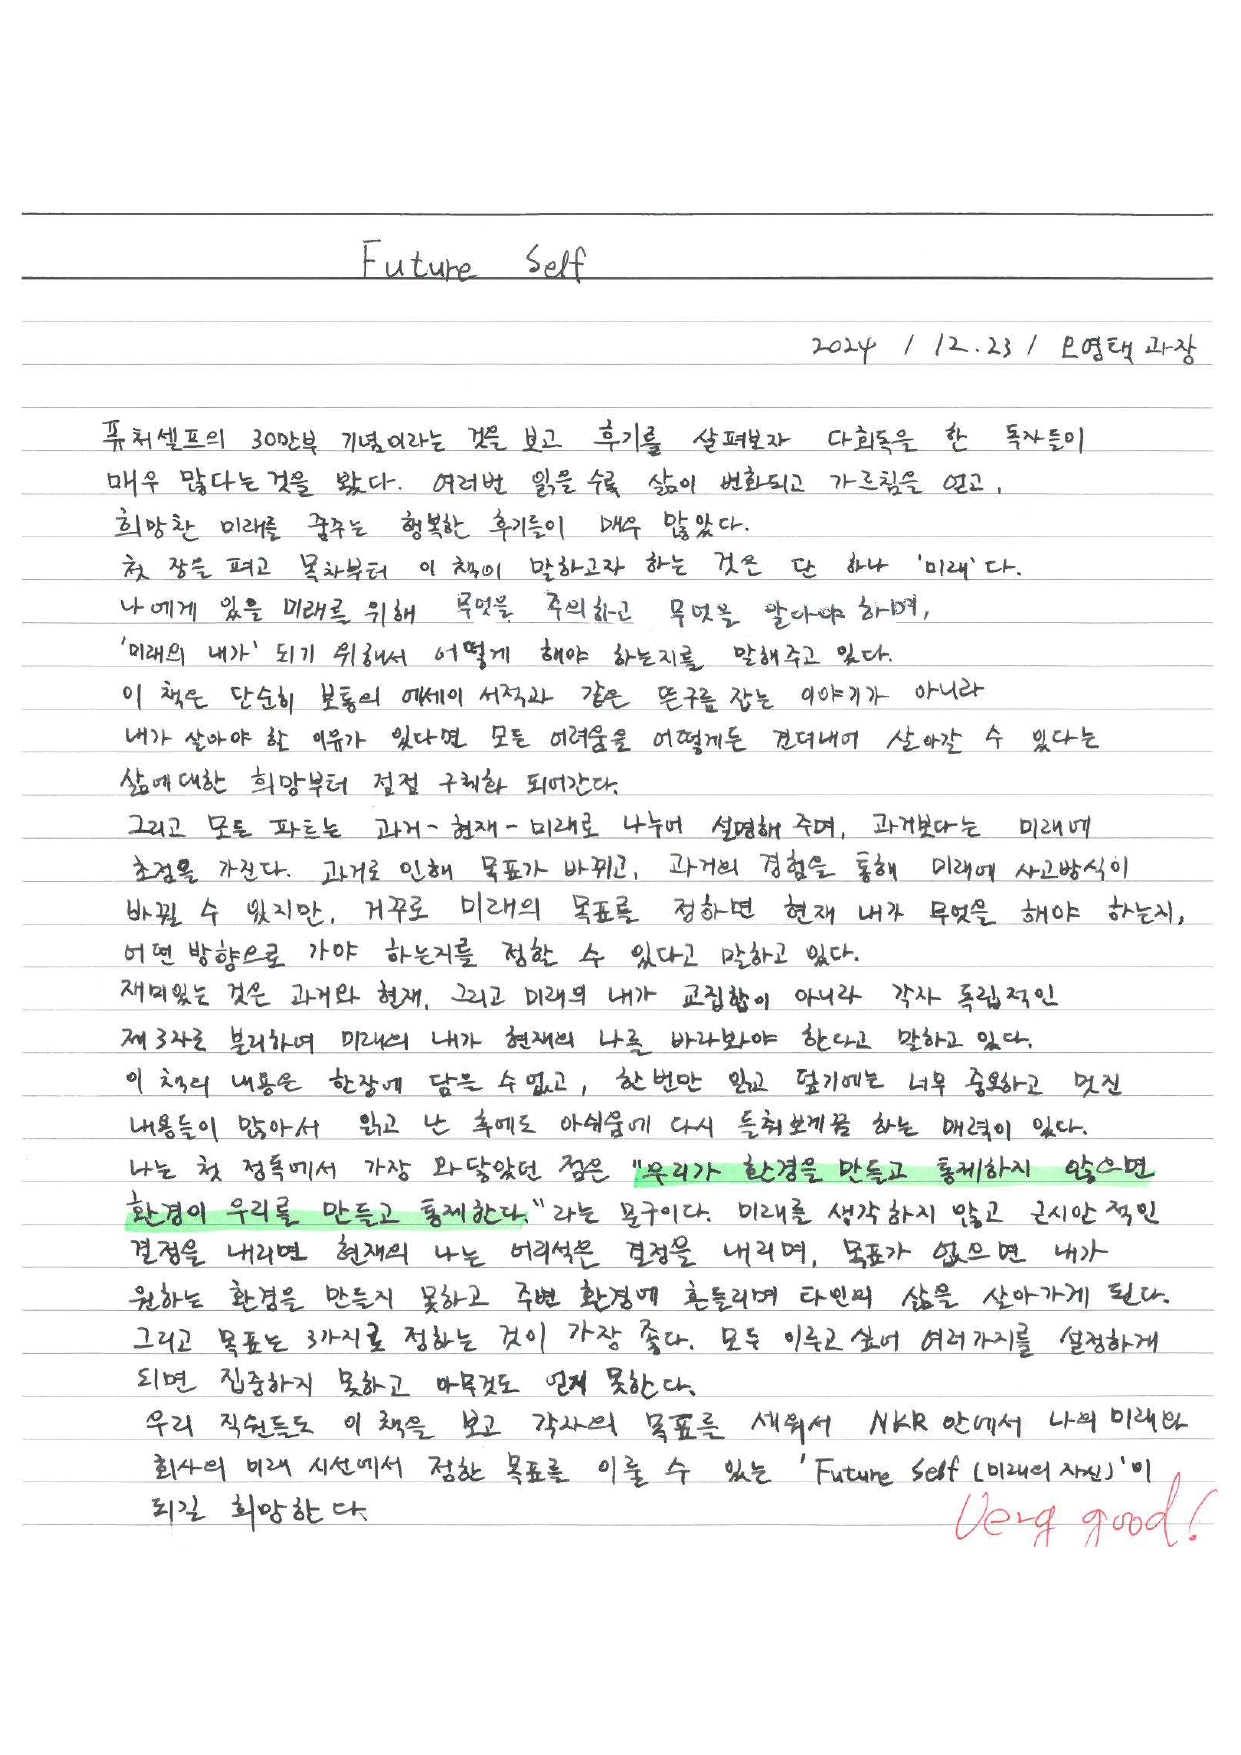 Future Self
2024 / 12.23 / 오영택 과장
퓨처셀프의 30만부 기념이라는 것을 보고 후기를 살펴보자 다회독을 한 독자들이
매우 많다는 것을 봤다. 여러번 읽을 수록 삶이 변화되고 가르침을 얻고,
희망찬 미래를 꿈꾸는 행복한 후기들이 매우 많았다.
첫 장을 펴고 목차부터 이 책이 말하고자 하는 것은 단 하나 '미래'다.
나에게 있을 미래를 위해 무엇을 주의하고 무엇을 알아야 하며,
'미래의 내가' 되기 위해서 어떻게 해야 하는지를 말해주고 있다.
이 책은 단순히 보통의 에세이 서적과 같은 뜬구름 잡는 이야기가 아니라
내가 살아야 할 이유가 있다면 모든 어려움을 어떻게든 견뎌내어 살아갈 수 있다는
삶에 대한 희망부터 점점 구체화 되어간다.
그리고 모든 파트는 과거-현재-미래로 나누어 설명해 주며, 과거보다는 미래에
초점을 가진다. 과거로 인해 목표가 바뀌고, 과거의 경험을 통해 미래에 사고방식이
바뀔 수 있지만, 거꾸로 미래의 목표를 정하면 현재 내가 무엇을 해야 하는지,
어떤 방향으로 가야 하는지를 정할 수 있다고 말하고 있다.
재미있는 것은 과거와 현재, 그리고 미래의 내가 교집합이 아니라 각자 독립적인
제 3자로 분리하여 미래의 내가 현재의 나를 바라봐야 한다고 말하고 있다.
이 책의 내용은 한장에 담을 수 없고, 한번만 읽고 덮기에는 너무 중요하고 멋진
내용들이 많아서 읽고 난 후에도 아쉬움에 다시 들춰보게끔 하는 매력이 있다.
나는 첫 정독에서 가장 와닿았던 점은 "우리가 환경을 만들고 통제하지 않으면
환경이 우리를 만들고 통제한다."라는 문구이다. 미래를 생각하지 않고 근시안적인
결정을 내리면 현재의 나는 어리석은 결정을 내리며, 목표가 없으면 내가
원하는 환경을 만들지 못하고 주변 환경에 흔들리며 타인의 삶을 살아가게 된다.
그리고 목표는 3가지로 정하는 것이 가장 좋다. 모두 이루고 싶어 여러가지를 설정하게
되면 집중하지 못하고 아무것도 얻지 못한다.
우리 직원들도 이 책을 보고 각자의 목표를 세워서 NKR 안에서 나의 미래와
회사의 미래 시선에서 정한 목표를 이룰 수 있는 'Future Self (미래의 자신)'이
되길 희망한다.
Very good!